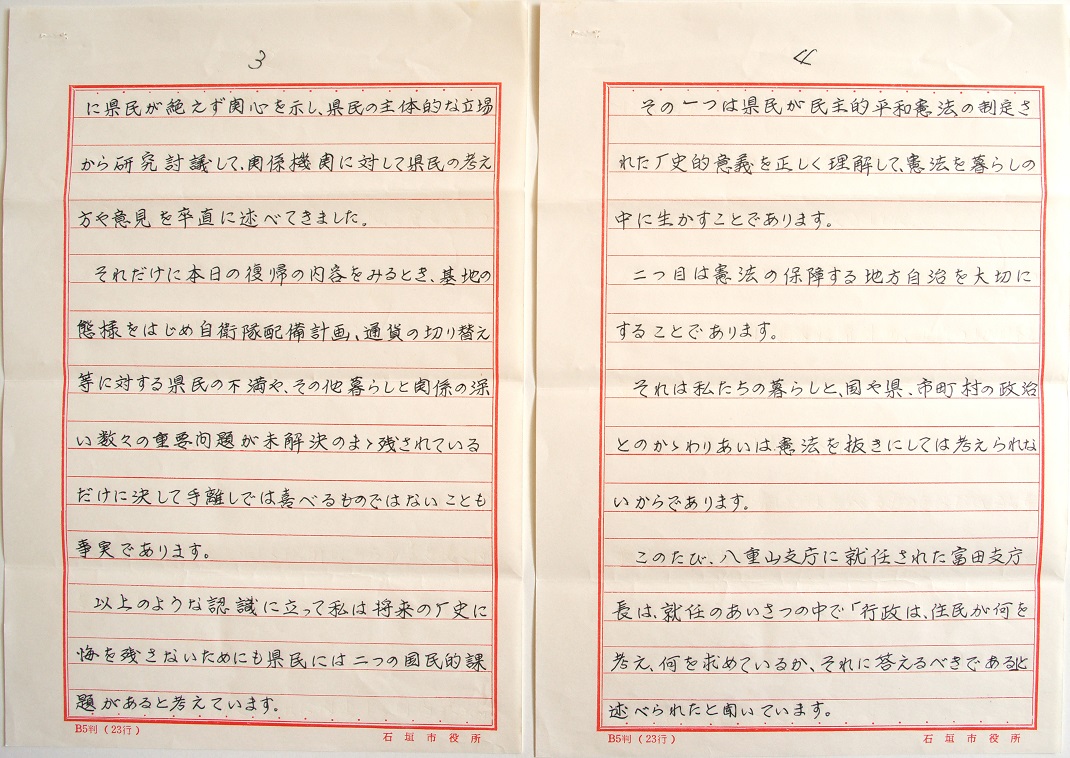 3
に県民が絶えず関心を示し、県民の主体的な立場
から研究討議して、関係機関に対して県民の考え
方や意見を卒直に述べてきました。
それだけに本日の復帰の内容をみるとき、基地の
態様をはじめ自衛隊配備計画、通貨の切り替え
等に対する県民の不満や、その他暮らしと関係の深
い数々の重要問題が未解決のまゝ残されている
だけに決して手離しでは喜べるものではないことも
事実であります。
以上のような認識に立って私は将来の厂史に
悔を残さないためにも県民には二つの国民的課
題があると考えています。
B5判(23行)
石垣市役所
4
その一つは県民が民主的平和憲法の制定さ
れた厂史的意義を正しく理解して、憲法を暮らしの
中に生かすことであります。
二つ目は憲法の保障する地方自治を大切に
することであります。
それは私たちの暮らしと、国や県、市町村の政治
とのかゝわりあいは憲法を抜きにしては考えられな
いからであります。
このたび、八重山支庁に就任された富田支庁
長は、就任のあいさつの中で「行政は、住民が何を
考え、何を求めているか、それに答えるべきである」と
述べられたと聞いています。
B5判(23行)
石垣市役所